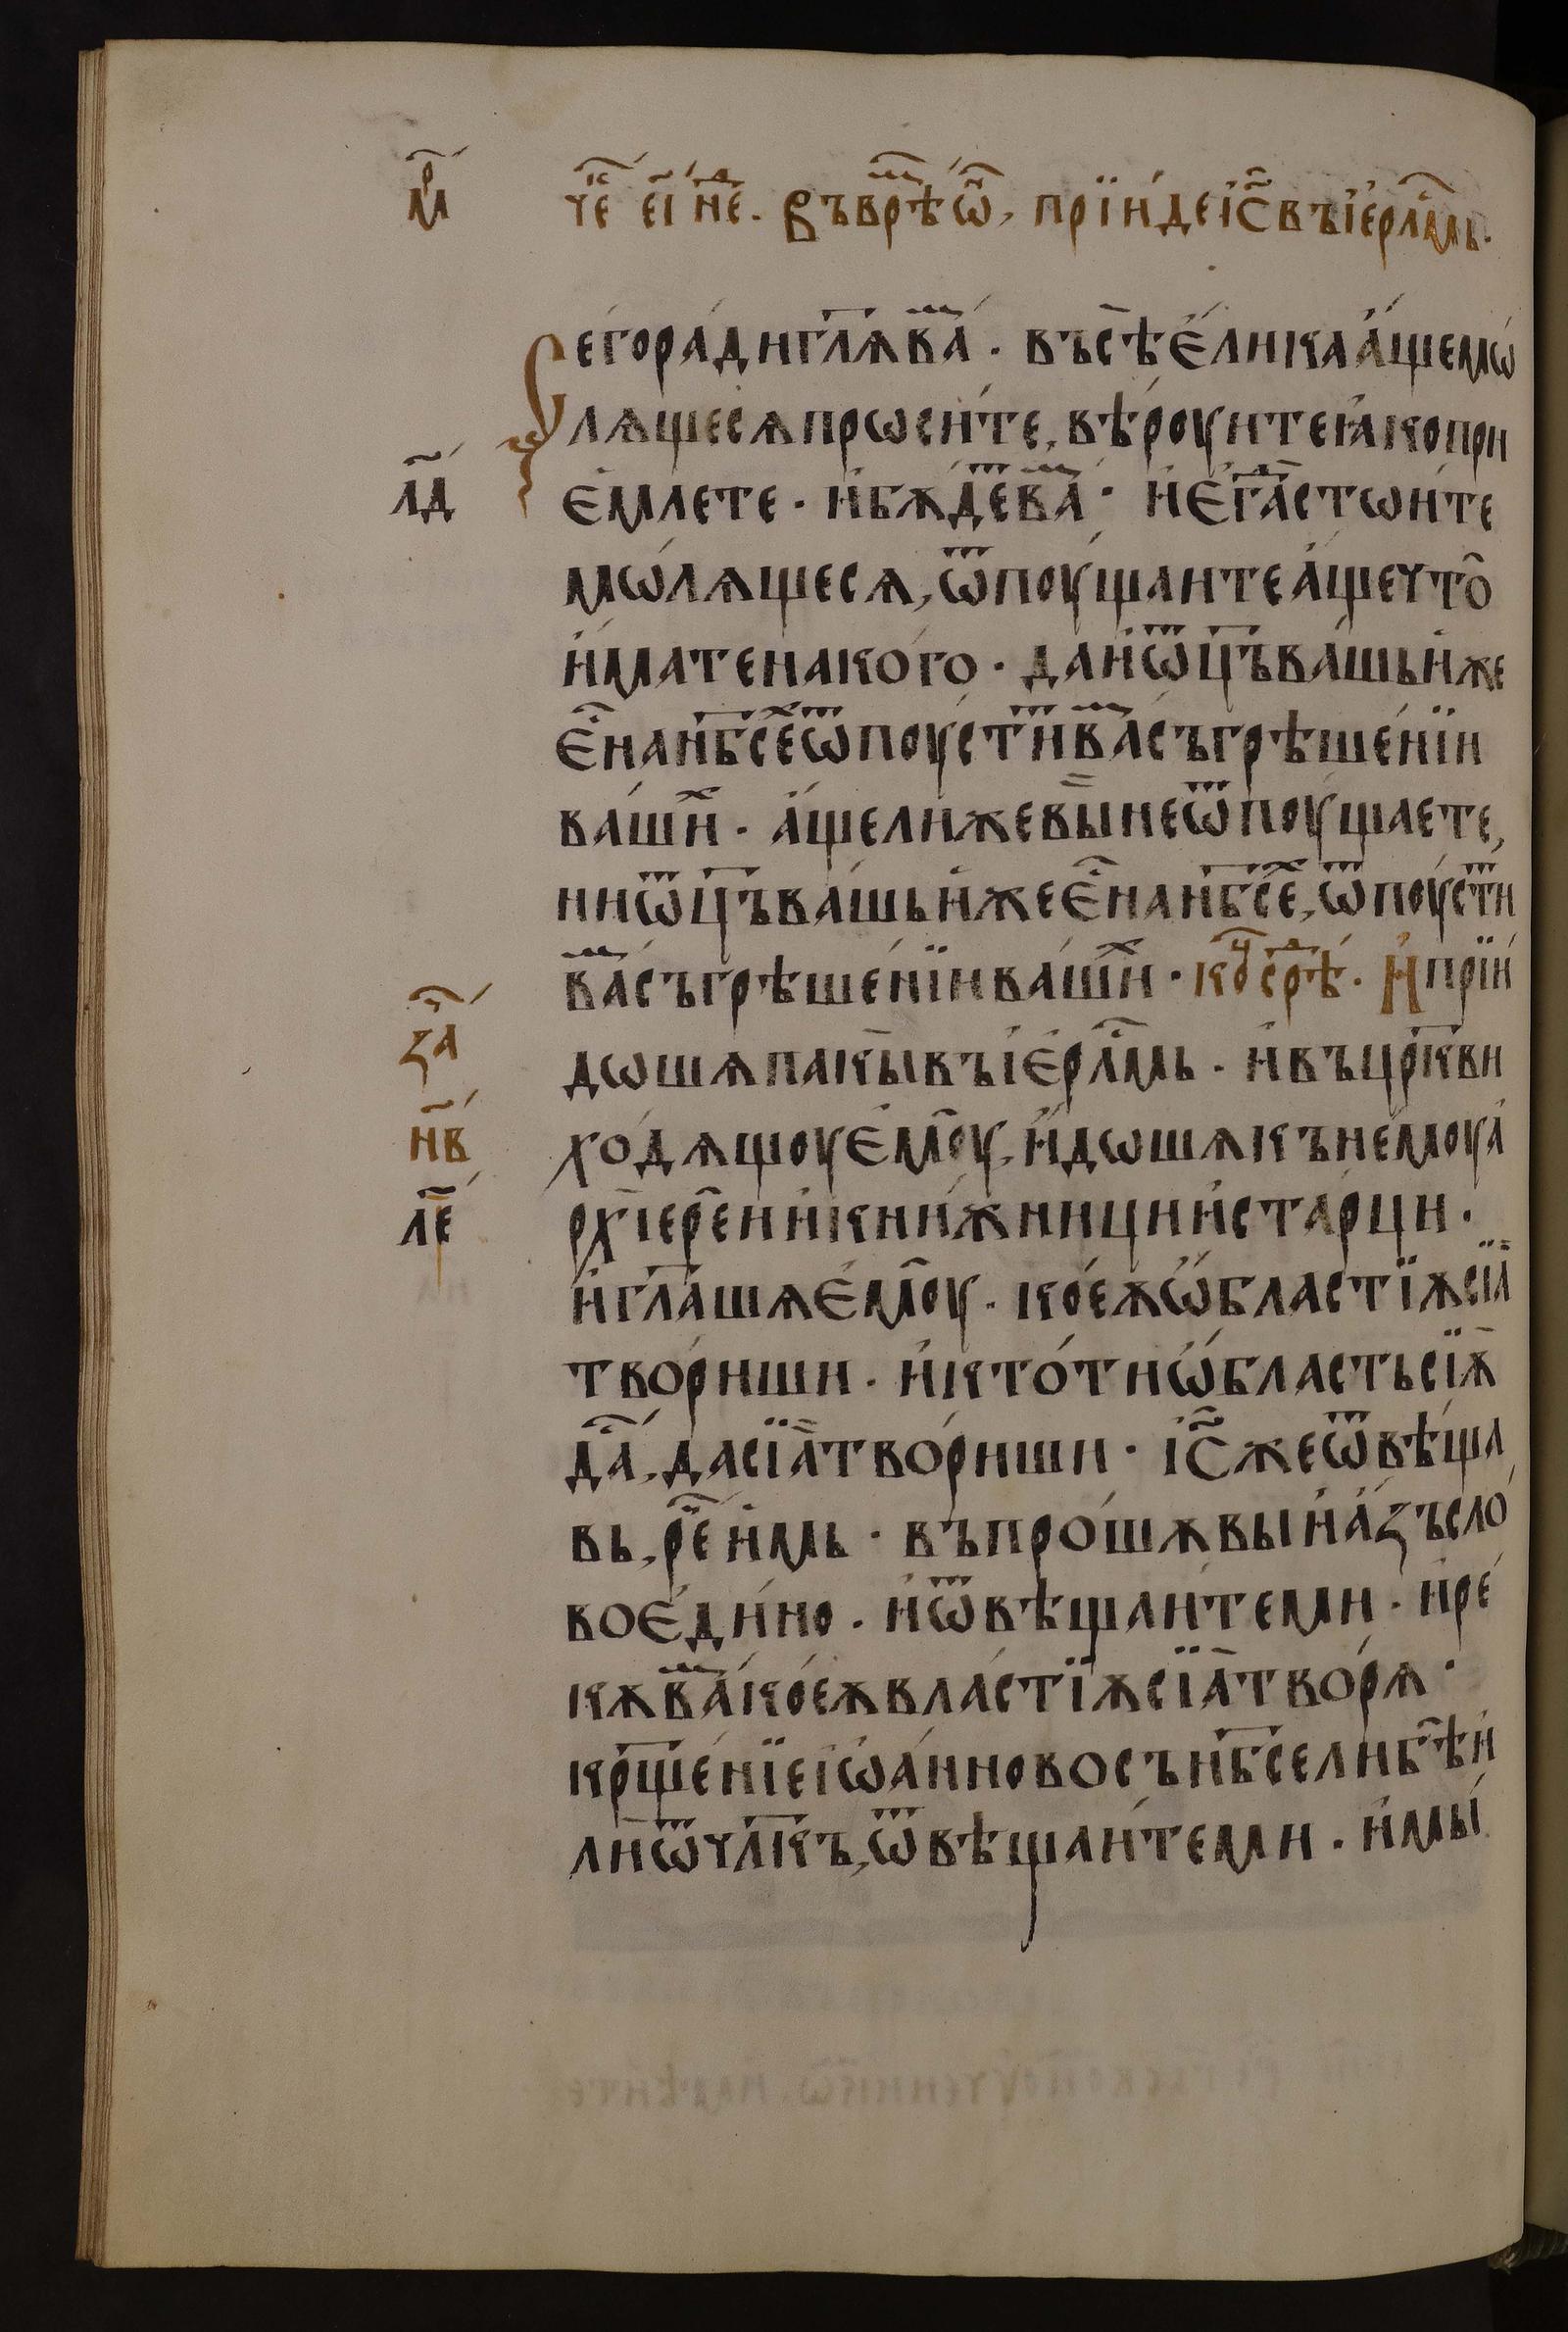 м҃р
че҃ еі҃ не҃ . Въ врѣ ѡ҃н, прїиде і҃с въ іерл҃мь .
Сего ради гл҃ѧ ва . въсѣ ели́ка а́ще мѡ
лѧщесѧ прѡси́те, вѣ́роуите ꙗ́ко при
л҃д
е́млете . и҆ бѫ́де ва . и҆ е҆гда стѡи́те
мѡ́лѧщесѧ, ѿпоу́щаите а҆ще что
и҆мате на ко́го . да и҆ ѿц҃ъ ва́шь и҆же
е҆ на нб҃се ѿпоустит ва съгрѣше́нїи
ва́ши . а҆ще ли же вы не ѿпоу́щаете,
ни ѿц҃ъ ва́шь и҆же е҆ на нб҃се, ѿпоу́стит
ва съгрѣше́нїи ва́ши . ко срѣ . И҆ прїи́
за҃
дѡшѧ па́кы въ і҆ерл҃мь . и҆ въ црк҃ви
н҃в
хо́дѧщоу е҆моу, и҆дѡшѧ къ не́моу а҆
л҃е
рхїере́и и҆ кни́жници и҆ ста́рци .
и҆ гл҃ашѧ е҆моу . ко́еѫ ѡ҆́бластїѫ сїа
тво́риши . и҆ кто́ ти ѡ҆́бласть сїѫ
да, да сїа тво́риши . і҆с҃ же ѿвѣ́ща
вь, ре и҆мь . въпро́шѫ вы и҆ а҆́зъ сло́
во е҆ди́но . и҆ ѿвѣщаи́те ми . и҆ ре
кѫ ва ко́еѫ вла́стїѫ сїа тво́рѧ .
крщ҃е́нїе і҆ѡа́нново съ нб҃се ли бѣ и҆
ли ѿ чл҃къ, ѿвѣщаи́те ми . и҆ мы